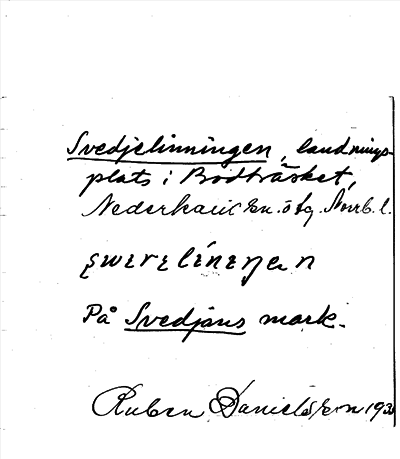 Svedjelinningen, landnings-
plats i Bodträsket,
Nederkalix sn. ö tg. Norrb. l.
På Svedjans mark.
Ruben Danielsson 193